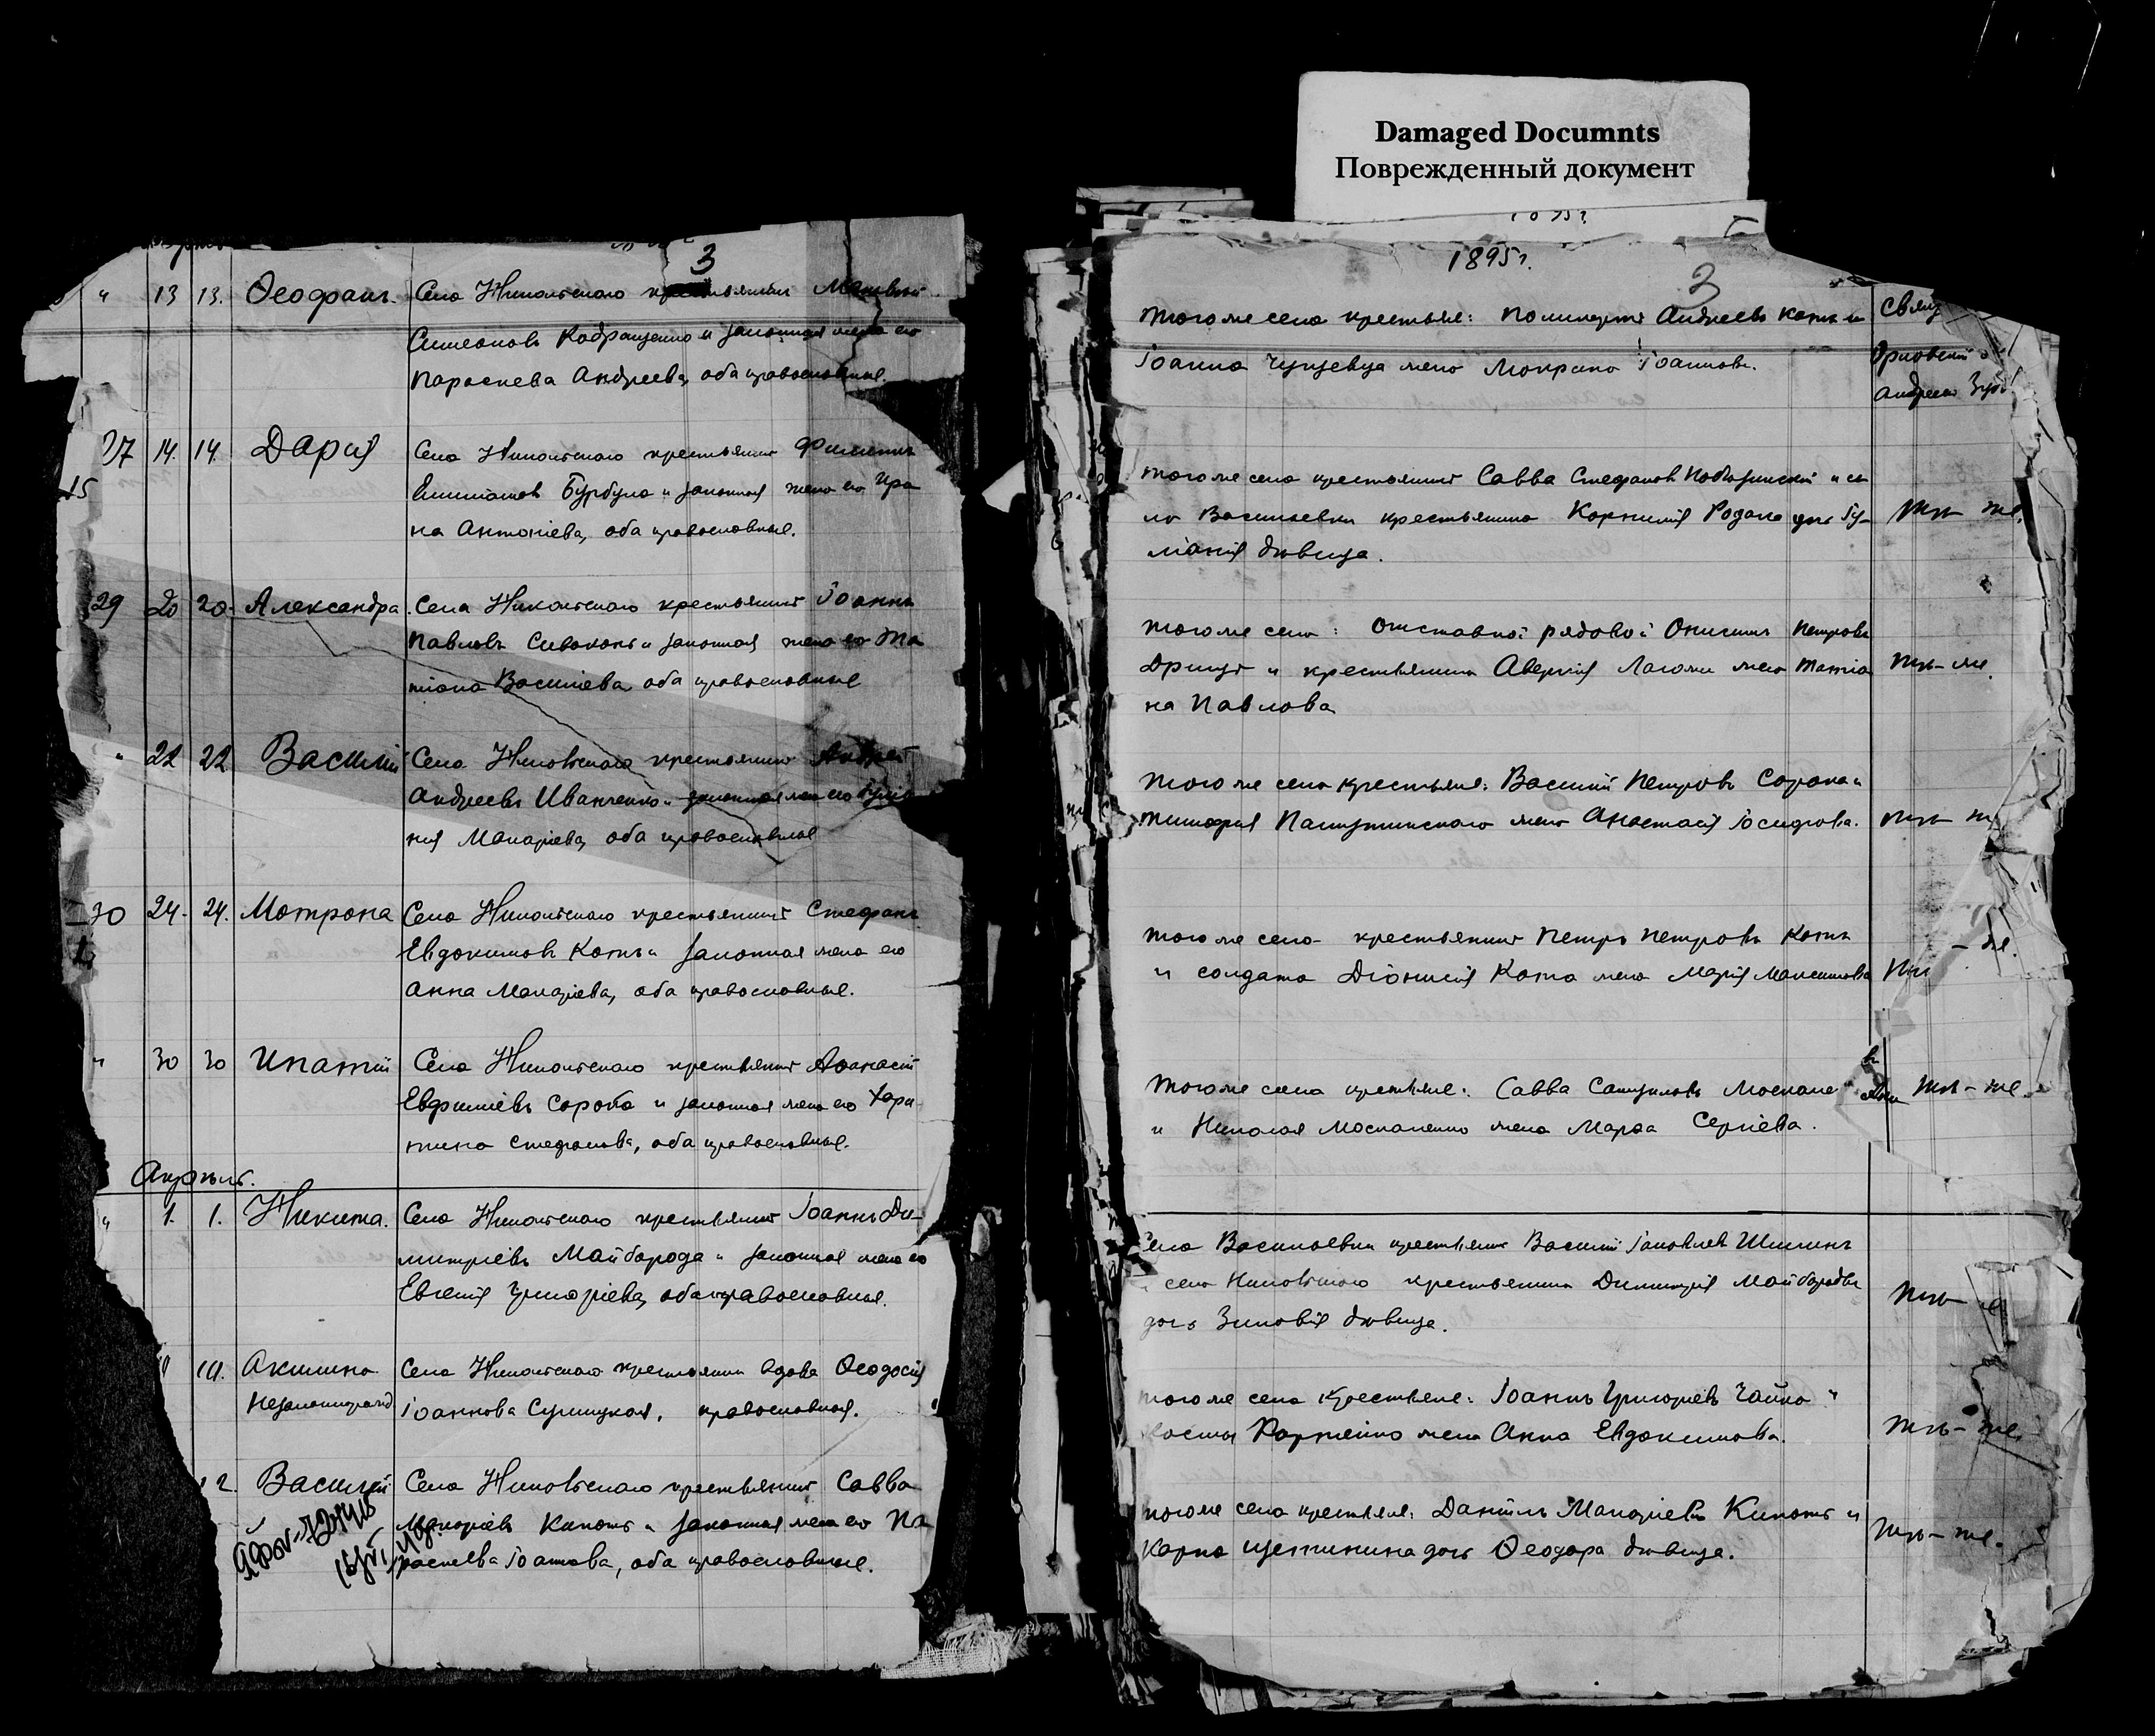 Damaged Documnts
Поврежденный документ
3
" 13 13. Ѳеофанъ. Села Никольскаго крестьянинъ Матвей
Симеоновъ и законная жена его
Параскева Андреева, оба православные.
27 14. 14. Дарія Села Никольскаго крестьянинъ Филиппъ
Бурбула и законная жена его Ири
на Антоніева, оба православные.
29 20 20. Александра. Села Никольскаго крестьянинъ Іоаннъ
Павловъ Сивоконь и законная жена его Та
тіана Василіева, оба православные
" 22 22 Василій Села Никольскаго крестьянинъ Андрей
Андреевъ Иванченко и законная жена его Іулiа
нія Макаріева, оба православные
30 24. 24. Мотрона Села Никольскаго крестьянинъ Стефанъ
Евдокимовъ Котъ и законная жена его
Анна Макаріева, оба православные.
" 30 30 Ипатій Села Никольскаго крестьянинъ Аѳанасій
Евфиміевъ Сорока и законная жена его Хари
тина Стефанова, оба православные.
Апрѣль.
" 1. 1. Никита. Села Никольскаго крестьянинъ Іоаннъ Ди-
митріевъ Майборода и законная жена его
Евгенія Григоріева, оба православные.
Акилина Села Никольскаго крестьянка вдова Ѳеодосія
незаконнорожд Іоаннова православная.
12. Василій Села Никольскаго крестьянинъ Савва
Макаріевъ Кипоть и законная жена его Па
раскева Іоаннова, оба православные.
1895г.
3
Того же села крестьяне: Поликарпъ Андреевъ Котъ и
Іоанна жена Іоаннова.
Свящ
Орловскій
Андреевъ
Того же села крестьянинъ Савва Стефановъ и се
ла Васильевки крестьянина Корнилія дочь Іу-
ліанія дѣвица.
Тѣ-же.
Того же села: отставной рядовой Онисимъ Петровъ
и крестьянина Аверкія жена Татіа
на Павлова
Тѣ-же.
Того же села крестьяне: Василій Петровъ Сорока и
Тимофея жена Анастасія Іосифова.
Тѣ-же
Того же села крестьянинъ Петръ Петровъ Котъ
и солдата Діонисія Кота жена Марія Максимова
Тѣ-же.
Того же села крестьяне: Савва Самуиловъ
и Николая Москаленко жена Марѳа Сергіева.
Тѣ-же.
Села Васильевки крестьянинъ Василій Яковлевъ Шишинъ
села Никольскаго крестьянина Димитрія Майбороды
дочь Зиновія дѣвица.
Того же села крестьяне: Іоаннъ Григоріевъ Чайка и
жена Анна Евдокимова.
Тѣ-же.
Того же села крестьяне: Даніилъ Макаріевъ Кипоть и
Карпа Щетинина дочь Ѳеодора дѣвица.
Тѣ-же.